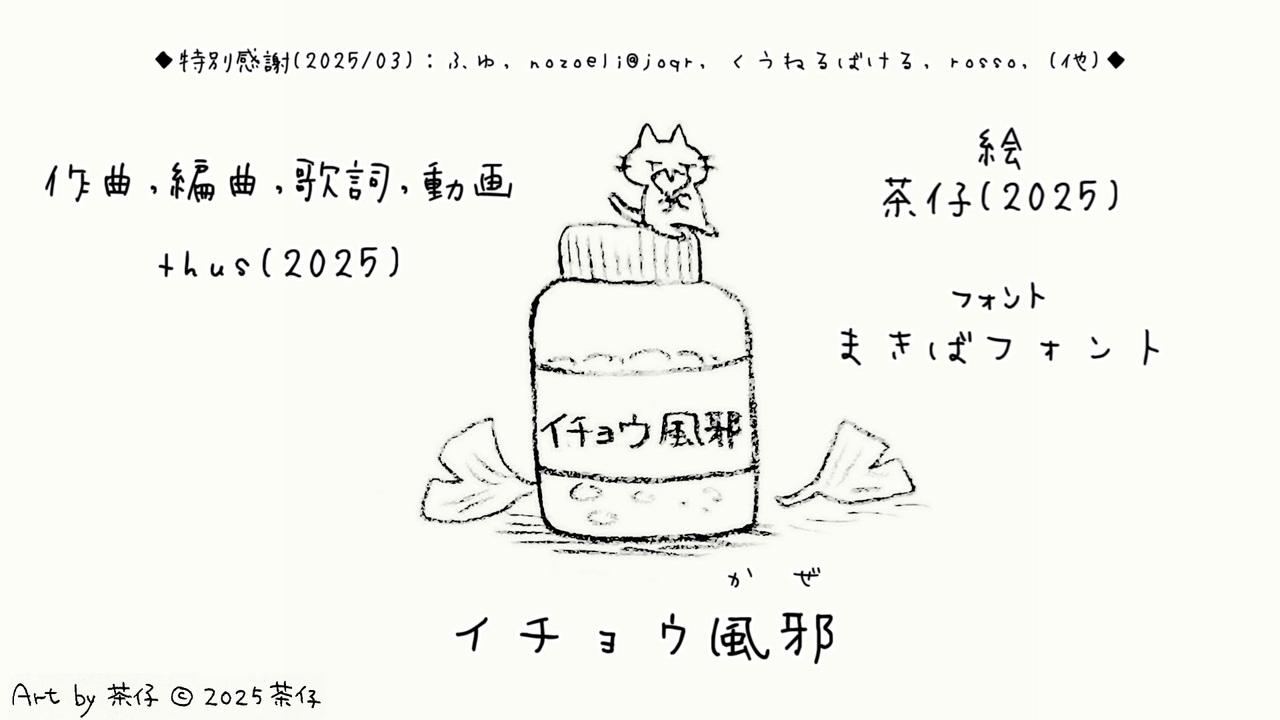 ◆特別感謝(2025/03)：ふゅ, nozoeli@joqr, くうねるばける, rosso, (他)◆
作曲,編曲,歌詞,動画
thus(2025)
絵
茶仔(2025)
フォント
まきばフォント
イチョウ風邪
かぜ
イチョウ風邪
Art by 茶仔 © 2025茶仔